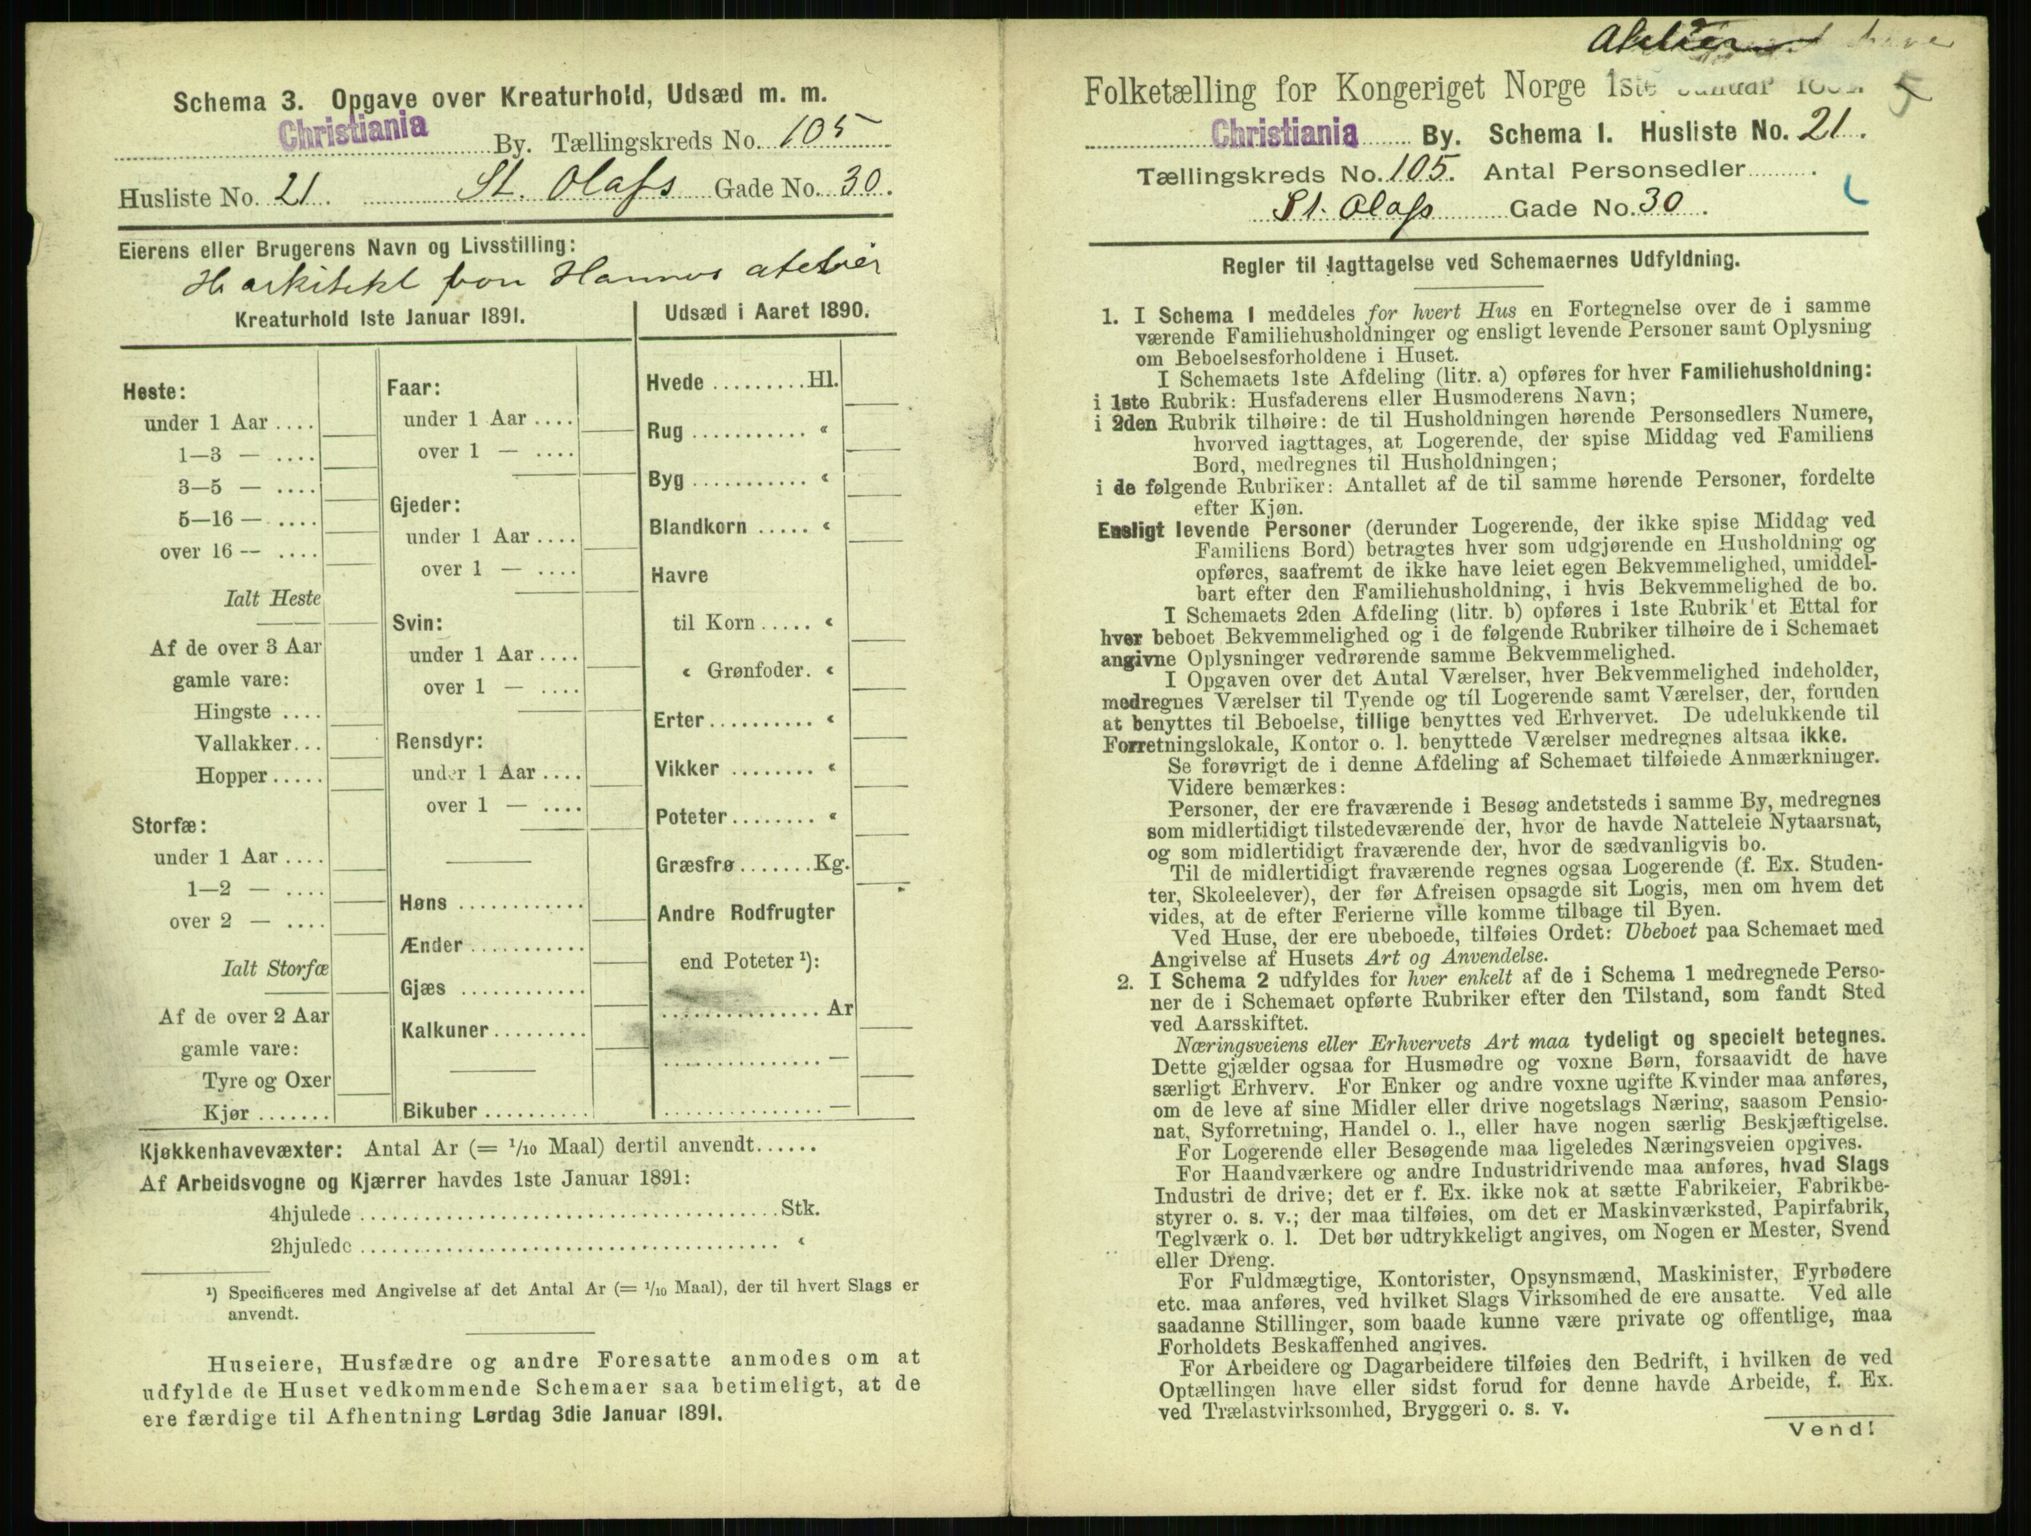 Schema 3. Opgave over Kreaturhold, Udsæd m. m.
Christiania By. Tællingskreds No. 105
Husliste No. 21. St. Olafs Gade No. 30.
Eierens eller Brugerens Navn og Livsstilling:
Hr arkitekt von Hannos atelier
Kreaturhold 1ste Januar 1891.
Heste:
under 1 Aar ....
1—3 — ....
3—5 — ....
5—16 — ....
over 16 — ....
Ialt Heste
Af de over 3 Aar
gamle vare:
Hingste ....
Vallakker...
Hopper ....
Storfæ:
under 1 Aar ....
1—2 — ....
over 2 — ....
Ialt Storfæ
Af de over 2 Aar
gamle vare:
Tyre og Oxer
Kjør .......
Faar:
under 1 Aar ....
over 1 — ....
Gjeder:
under 1 Aar ....
over 1 — ....
Svin:
under 1 Aar ....
over 1 — ....
Rensdyr:
under 1 Aar ....
over 1 — ....
Høns ............
Ænder ...........
Gjæs ............
Kalkuner .........
Bikuber ..........
Udsæd i Aaret 1890.
Hvede .........Hl.
Rug ........... «
Byg ........... «
Blandkorn ..... «
Havre
til Korn ..... «
« Grønfoder. «
Erter.......... «
Vikker ........ «
Poteter........ «
Græsfrø .......Kg.
Andre Rodfrugter
end Poteter ¹):
............... Ar
............... —
............... —
Kjøkkenhavevæxter: Antal Ar (= 1/10 Maal) dertil anvendt......
Af Arbeidsvogne og Kjærrer havdes 1ste Januar 1891:
4hjulede ....................................... Stk.
2hjulede ....................................... «
¹) Specificeres med Angivelse af det Antal Ar (= 1/10 Maal), der til hvert Slags er
anvendt.
Huseiere, Husfædre og andre Foresatte anmodes om at
udfylde de Huset vedkommende Schemaer saa betimeligt, at de
ere færdige til Afhentning Lørdag 3die Januar 1891.
Atelier
Folketælling for Kongeriget Norge 1ste Januar 5
Christiania By. Schema 1. Husliste No. 21.
Tællingskreds No. 105. Antal Personsedler .........
St. Olafs Gade No. 30.
Regler til Iagttagelse ved Schemaernes Udfyldning.
1. I Schema 1 meddeles for hvert Hus en Fortegnelse over de i samme
værende Familiehusholdninger og ensligt levende Personer samt Oplysning
om Beboelsesforholdene i Huset.
I Schemaets 1ste Afdeling (litr. a) opføres for hver Familiehusholdning:
i 1ste Rubrik: Husfaderens eller Husmoderens Navn;
i 2den Rubrik tilhøire: de til Husholdningen hørende Personsedlers Numere,
hvorved iagttages, at Logerende, der spise Middag ved Familiens
Bord, medregnes til Husholdningen;
i de følgende Rubriker: Antallet af de til samme hørende Personer, fordelte
efter Kjøn.
Ensligt levende Personer (derunder Logerende, der ikke spise Middag ved
Familiens Bord) betragtes hver som udgjørende en Husholdning og
opføres, saafremt de ikke have leiet egen Bekvemmelighed, umiddel-
bart efter den Familiehusholdning, i hvis Bekvemmelighed de bo.
I Schemaets 2den Afdeling (litr. b) opføres i 1ste Rubrik et Ettal for
hver beboet Bekvemmelighed og i de følgende Rubriker tilhøire de i Schemaet
angivne Oplysninger vedrørende samme Bekvemmelighed.
I Opgaven over det Antal Værelser, hver Bekvemmelighed indeholder,
medregnes Værelser til Tyende og til Logerende samt Værelser, der, foruden
at benyttes til Beboelse, tillige benyttes ved Erhvervet. De udelukkende til
Forretningslokale, Kontor o. l. benyttede Værelser medregnes altsaa ikke.
Se forøvrigt de i denne Afdeling af Schemaet tilføiede Anmærkninger.
Videre bemærkes:
Personer, der ere fraværende i Besøg andetsteds i samme By, medregnes
som midlertidigt tilstedeværende der, hvor de havde Natteleie Nytaarsnat,
og som midlertidigt fraværende der, hvor de sædvanligvis bo.
Til de midlertidigt fraværende regnes ogsaa Logerende (f. Ex. Studen-
ter, Skoleelever), der før Afreisen opsagde sit Logis, men om hvem det
vides, at de efter Ferierne ville komme tilbage til Byen.
Ved Huse, der ere ubeboede, tilføies Ordet: Ubeboet paa Schemaet med
Angivelse af Husets Art og Anvendelse.
2. I Schema 2 udfyldes for hver enkelt af de i Schema 1 medregnede Perso-
ner de i Schemaet opførte Rubriker efter den Tilstand, som fandt Sted
ved Aarsskiftet.
Næringsveiens eller Erhvervets Art maa tydeligt og specielt betegnes.
Dette gjælder ogsaa for Husmødre og voxne Børn, forsaavidt de have
særligt Erhverv. For Enker og andre voxne ugifte Kvinder maa anføres,
om de leve af sine Midler eller drive nogetslags Næring, saasom Pensio-
nat, Syforretning, Handel o. l., eller have nogen særlig Beskjæftigelse.
For Logerende eller Besøgende maa ligeledes Næringsveien opgives.
For Haandværkere og andre Industridrivende maa anføres, hvad Slags
Industri de drive; det er f. Ex. ikke nok at sætte Fabrikeier, Fabrikbe-
styrer o. s. v.; der maa tilføies, om det er Maskinværksted, Papirfabrik,
Teglværk o. l. Det bør udtrykkeligt angives, om Nogen er Mester, Svend
eller Dreng.
For Fuldmægtige, Kontorister, Opsynsmænd, Maskinister, Fyrbødere
etc. maa anføres, ved hvilket Slags Virksomhed de ere ansatte. Ved alle
saadanne Stillinger, som baade kunne være private og offentlige, maa
Forholdets Beskaffenhed angives.
For Arbeidere og Dagarbeidere tilføies den Bedrift, i hvilken de ved
Optællingen have eller sidst forud for denne havde Arbeide, f. Ex.
ved Trælastvirksomhed, Bryggeri o. s. v.
Vend!